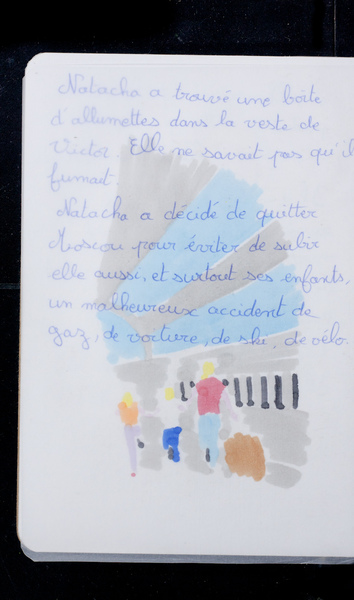 Natacha a trouvé une boîte
d'allumettes dans la veste de
Victor. Elle ne savait pas qu'il
fumait.
Natacha a décidé de quitter
Moscou pour éviter de subir
elle aussi, et surtout ses enfants,
un malheureux accident de
gaz, de voiture, de ski, de vélo.